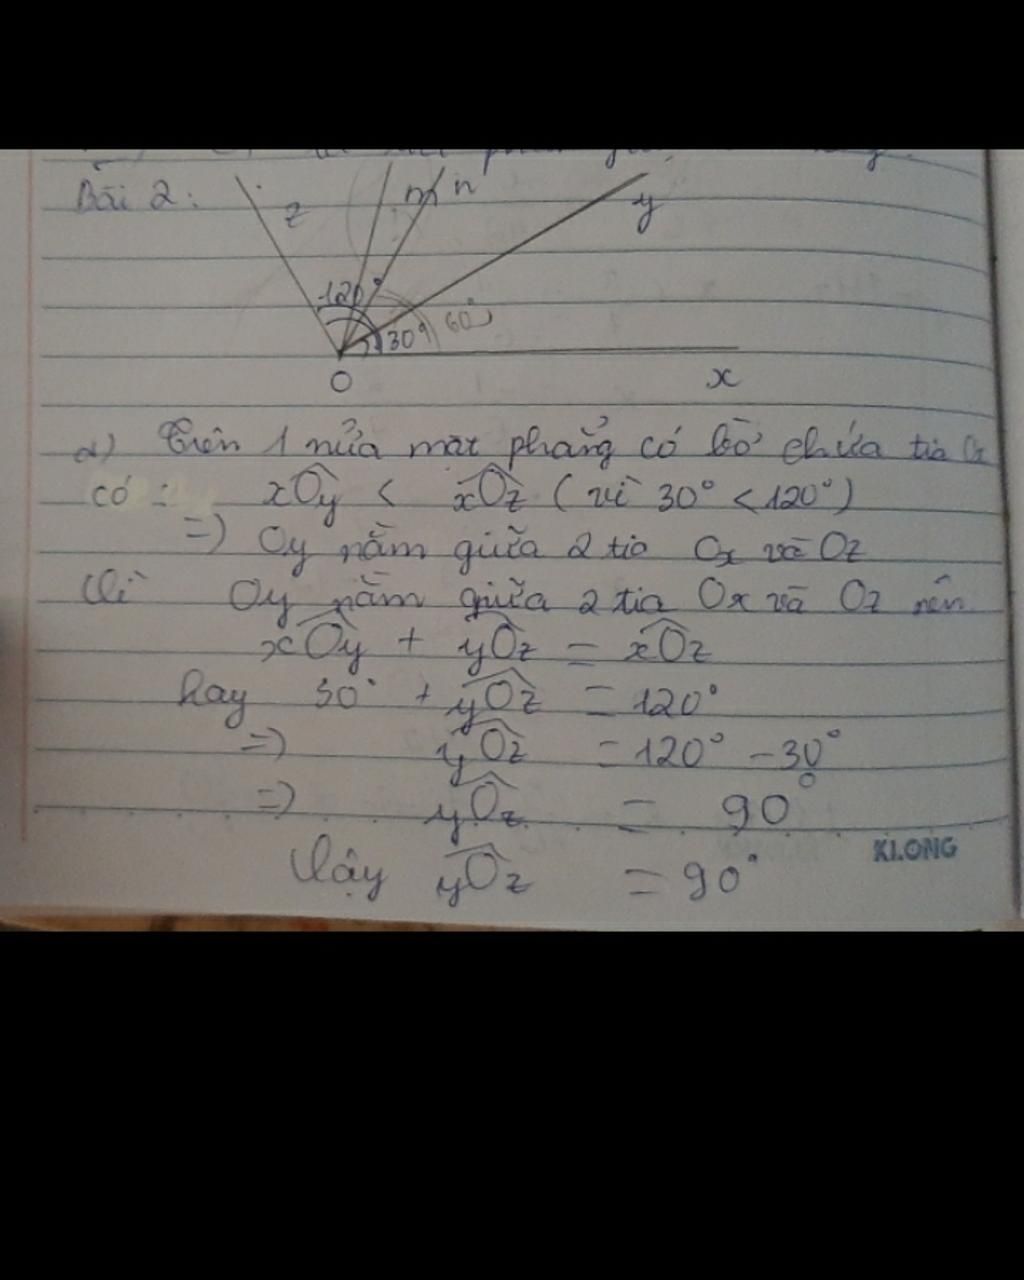 Bài 2:
z
m
n
y
120°
30°
60°
O
x
a) Trên 1 nửa mặt phẳng có bờ chứa tia Ox
có : xOy < xOz ( vì 30° < 120° )
=) Oy nằm giữa 2 tia Ox và Oz
Vì Oy nằm giữa 2 tia Ox và Oz nên
xOy + yOz = xOz
hay 30° + yOz = 120°
=) yOz = 120° - 30°
=) yOz = 90°
KLONG
Vậy yOz = 90°